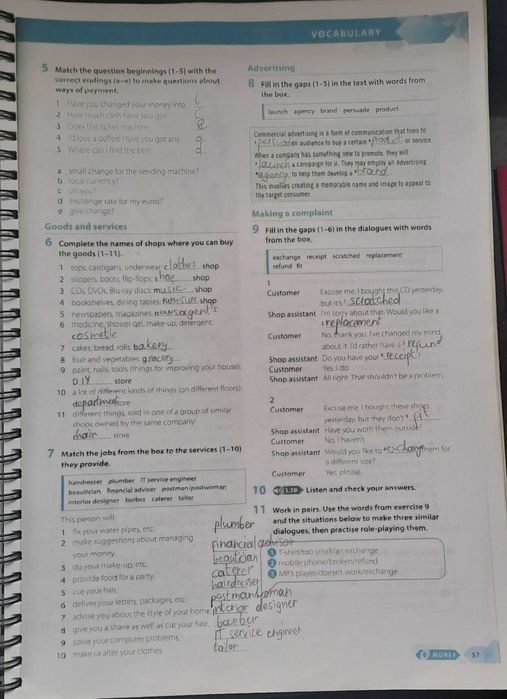 VOCABULARY
5 Match the question beginnings (1–5) with the
correct endings (a–e) to make questions about
ways of payment.
1 Have you changed your money into b
2 How much cash have you got c
3 Does this tickets machine e
4 I'd love a coffee! Have you got any a
5 Where can I find the best d
a small change for the vending machine?
b local currency?
c on you?
d exchange rate for my euros?
e give change?
Goods and services
6 Complete the names of shops where you can buy
the goods (1–11).
1 tops, cardigans, underwear: clothes shop
2 slippers, boots, flip-flops: shoe shop
3 CDs, DVDs, Blu-ray discs: music shop
4 bookshelves, dining tables: furniture shop
5 newspapers, magazines: newsagent's
6 medicine, shower gel, make-up, detergent:
cosmetic
7 cakes, bread, rolls: bakery
8 fruit and vegetables: grocery
9 paint, nails, tools (things for improving your house):
DIY store
10 a lot of different kinds of things (on different floors):
department store
11 different things, sold in one of a group of similar
shops owned by the same company:
chain store
7 Match the jobs from the box to the services (1–10)
they provide.
hairdresser plumber IT service engineer
beautician financial adviser postman/postwoman
interior designer barber caterer tailor
This person will:
1 fix your water pipes, etc. plumber
2 make suggestions about managing
your money. financial advisor
3 do your make-up, etc. beautician
4 provide food for a party. caterer
5 cut your hair. hairdresser
6 deliver your letters, packages, etc. postman/woman
7 advise you about the style of your home. interior designer
8 give you a shave as well as cut your hair. barber
9 solve your computer problems. IT service engineer
10 make or alter your clothes. tailor
Advertising
8 Fill in the gaps (1–5) in the text with words from
the box.
launch agency brand persuade product
Commercial advertising is a form of communication that tries to
1 persuade an audience to buy a certain 2 product or service.
When a company has something new to promote, they will
3 launch a campaign for it. They may employ an advertising
4 agency to help them develop a 5 brand
This involves creating a memorable name and image to appeal to
the target consumer.
Making a complaint
9 Fill in the gaps (1–6) in the dialogues with words
from the box.
exchange receipt scratched replacement
refund fit
1
Customer Excuse me. I bought this CD yesterday,
but it's 1 scratched
Shop assistant I'm sorry about that. Would you like a
2 replacement
Customer No, thank you. I've changed my mind
about it. I'd rather have a 3 refund
Shop assistant Do you have your 4 receipt?
Customer Yes, I do.
Shop assistant All right. That shouldn't be a problem.
2
Customer Excuse me. I bought these shoes
yesterday, but they don't 5 fit
Shop assistant Have you worn them outside?
Customer No, I haven't.
Shop assistant Would you like to 6 exchange them for
a different size?
Customer Yes, please.
10 1.19 Listen and check your answers.
11 Work in pairs. Use the words from exercise 9
and the situations below to make three similar
dialogues, then practise role-playing them.
1 T-shirt/too small/an exchange
2 mobile phone/broken/refund
3 MP3 player/doesn't work/exchange
6 MONEY 57